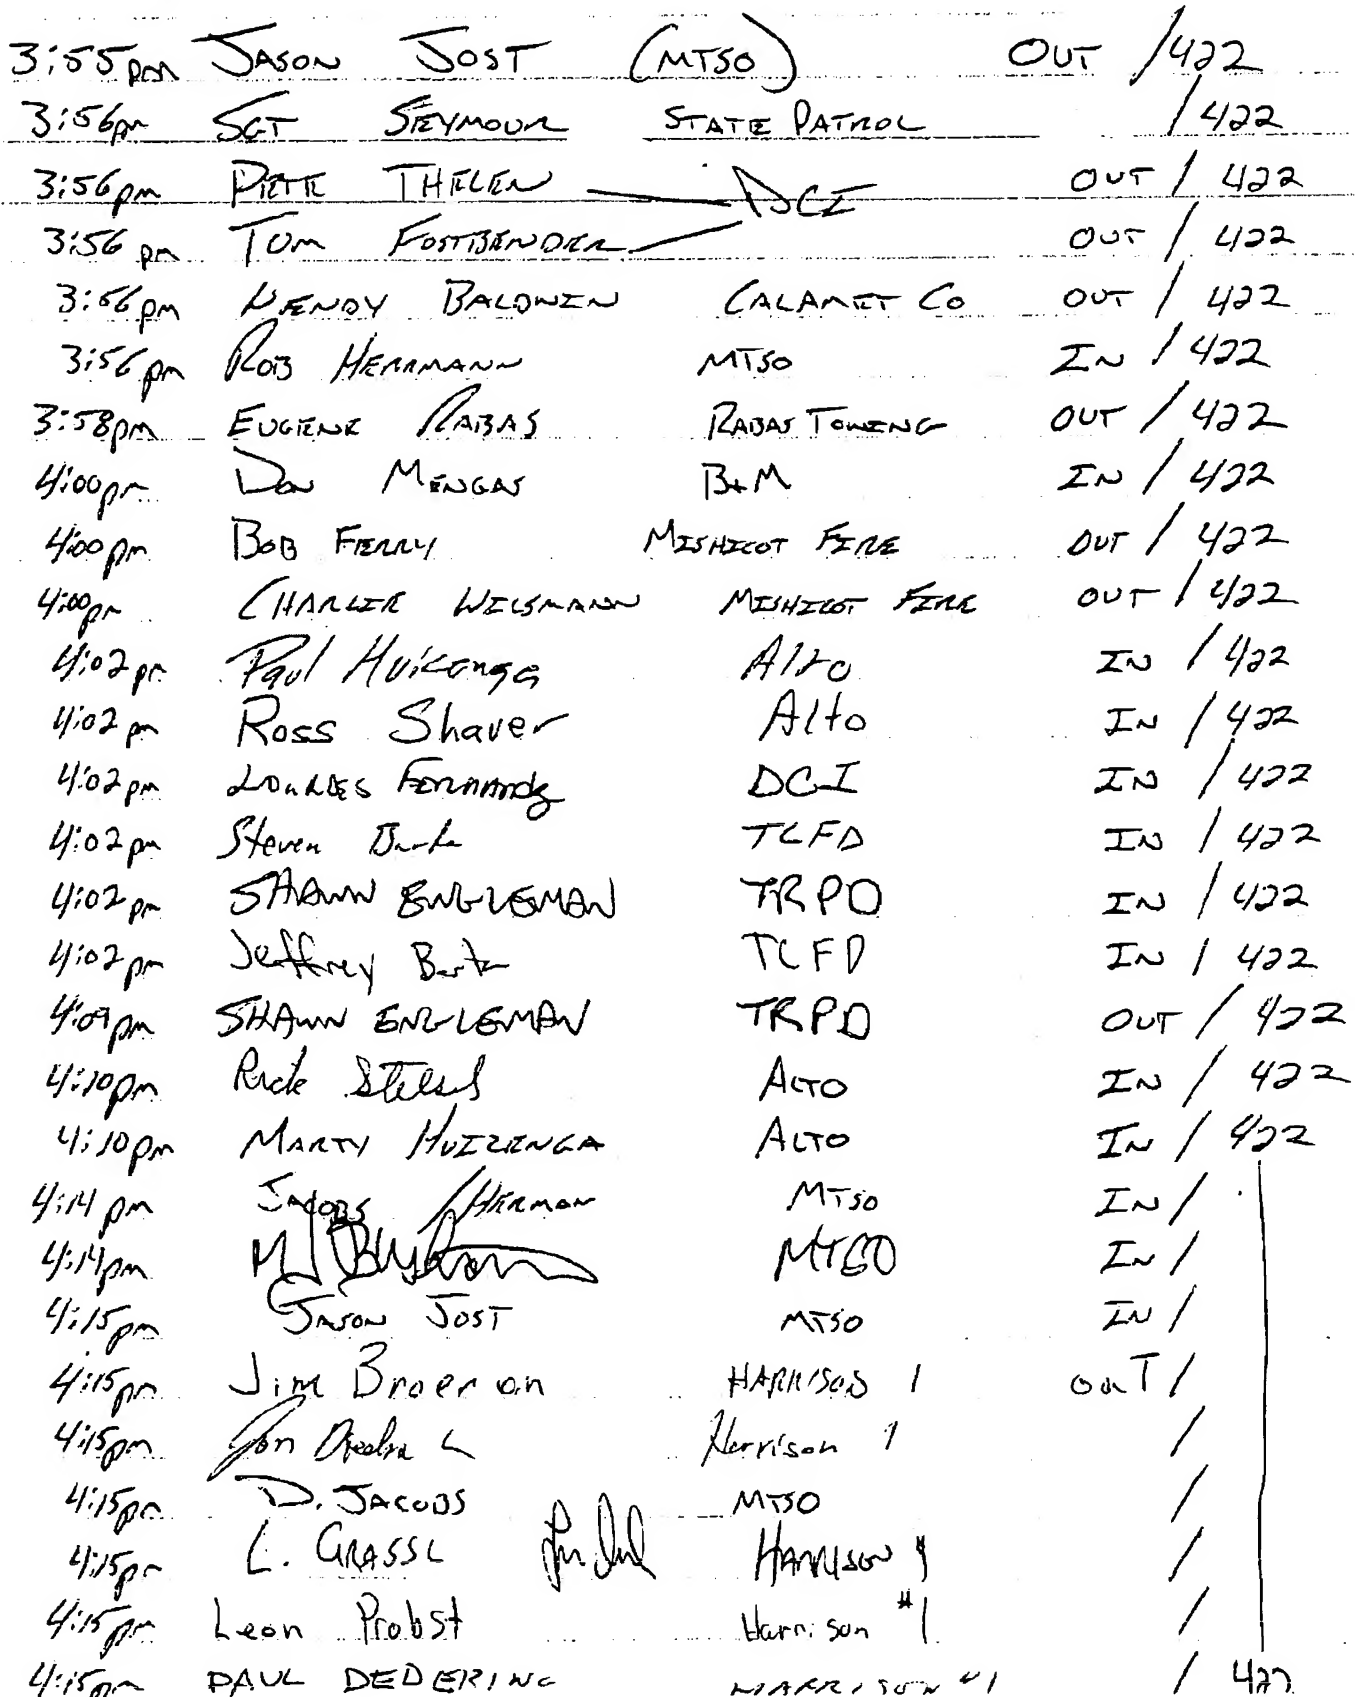 3:55pm JASON JOST (MTSO) OUT /422
3:56pm SGT SEYMOUR STATE PATROL /422
3:56pm PETE THELEN DCI OUT / 422
3:56 pm TOM FASSBENDER OUT / 422
3:56pm WENDY BALDWIN CALAMET CO OUT / 422
3:56pm ROB HERRMANN MTSO IN / 422
3:58pm EUGENE RABAS RABAS TOWING OUT / 422
4:00pm DON MENGAS B+M IN / 422
4:00pm BOB FERRY MISHICOT FIRE OUT / 422
4:00pm CHARLIE WILSMANN MISHICOT FIRE OUT / 422
4:02pm Paul Huizenga Alto IN / 422
4:02pm Ross Shaver Alto IN / 422
4:02pm LOURDES FERNANDEZ DCI IN / 422
4:02pm Steven TCFD IN / 422
4:02pm SHAWN ENGLEMAN TRPD IN / 422
4:02pm Jeffrey TCFD IN / 422
4:09pm SHAWN ENGLEMAN TRPD OUT / 422
4:10pm Rick ALTO IN / 422
4:10pm MARTY HUIZENGA ALTO IN / 422
4:14 pm JACOBS / HERMAN MTSO IN /
4:14pm MTSO IN /
4:15pm JASON JOST MTSO IN /
4:15pm Jim HARRISON 1 OUT /
4:15pm Jon Harrison 1 /
4:15pm D. JACOBS MTSO /
4:15pm L. GRASSL HARRISON 1 /
4:15pm Leon Probst Harrison #1 /
4:15pm PAUL DEDERING HARRISON #1 / 422